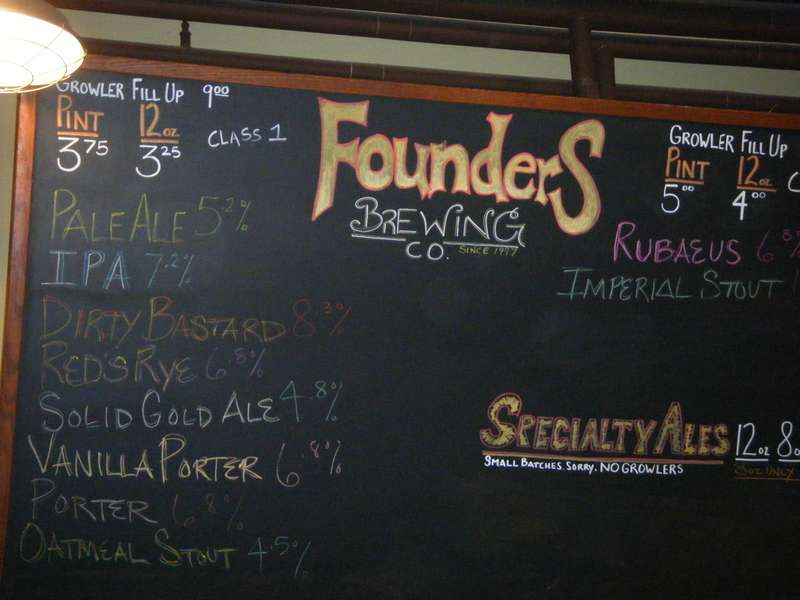 GROWLER FILL UP 9.00
PINT 12oz CLASS 1
3.75 3.25
PALE ALE 5.2%
IPA 7.2%
DIRTY BASTARD 8.3%
RED'S RYE 6.8%
SOLID GOLD ALE 4.8%
VANILLA PORTER 6.8%
PORTER 6.8%
OATMEAL STOUT 4.5%
FOUNDERS
BREWING
CO. SINCE 1997
GROWLER FILL UP
PINT 12oz
5.00 4.00
RUBAEUS
IMPERIAL STOUT
SPECIALTY ALES 12oz
SMALL BATCHES. SORRY. NO GROWLERS